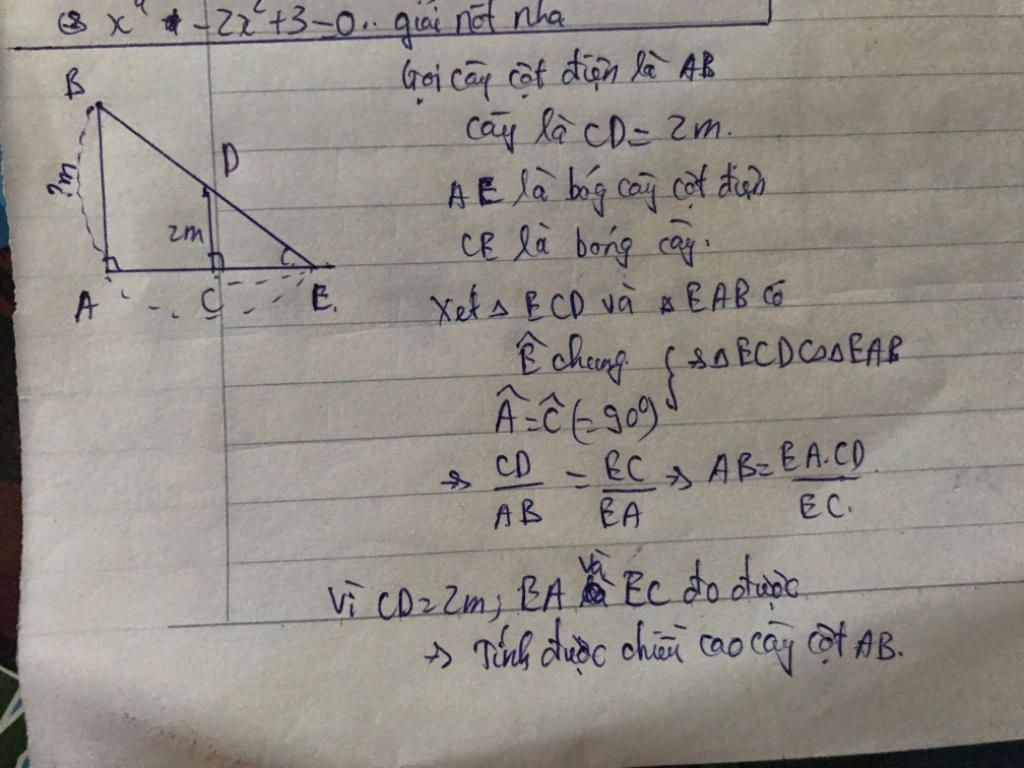 ⇔ x⁴ -2x²+3=0.. giải nốt nha
B
Gọi cây cột điện là AB
cây là CD= 2m.
D
?m
AE là bóg cây cột điện
2m
CE là bóng cây.
A
C
E.
Xét △ ECD và △ EAB có
Ê chung
Â=Ĉ (=90°)
} → △ECD ∽ △EAB
→ CD/AB = EC/EA → AB= EA.CD/EC.
Vì CD=2m; EA và EC đo được
→ Tính được chiều cao cây cột AB.